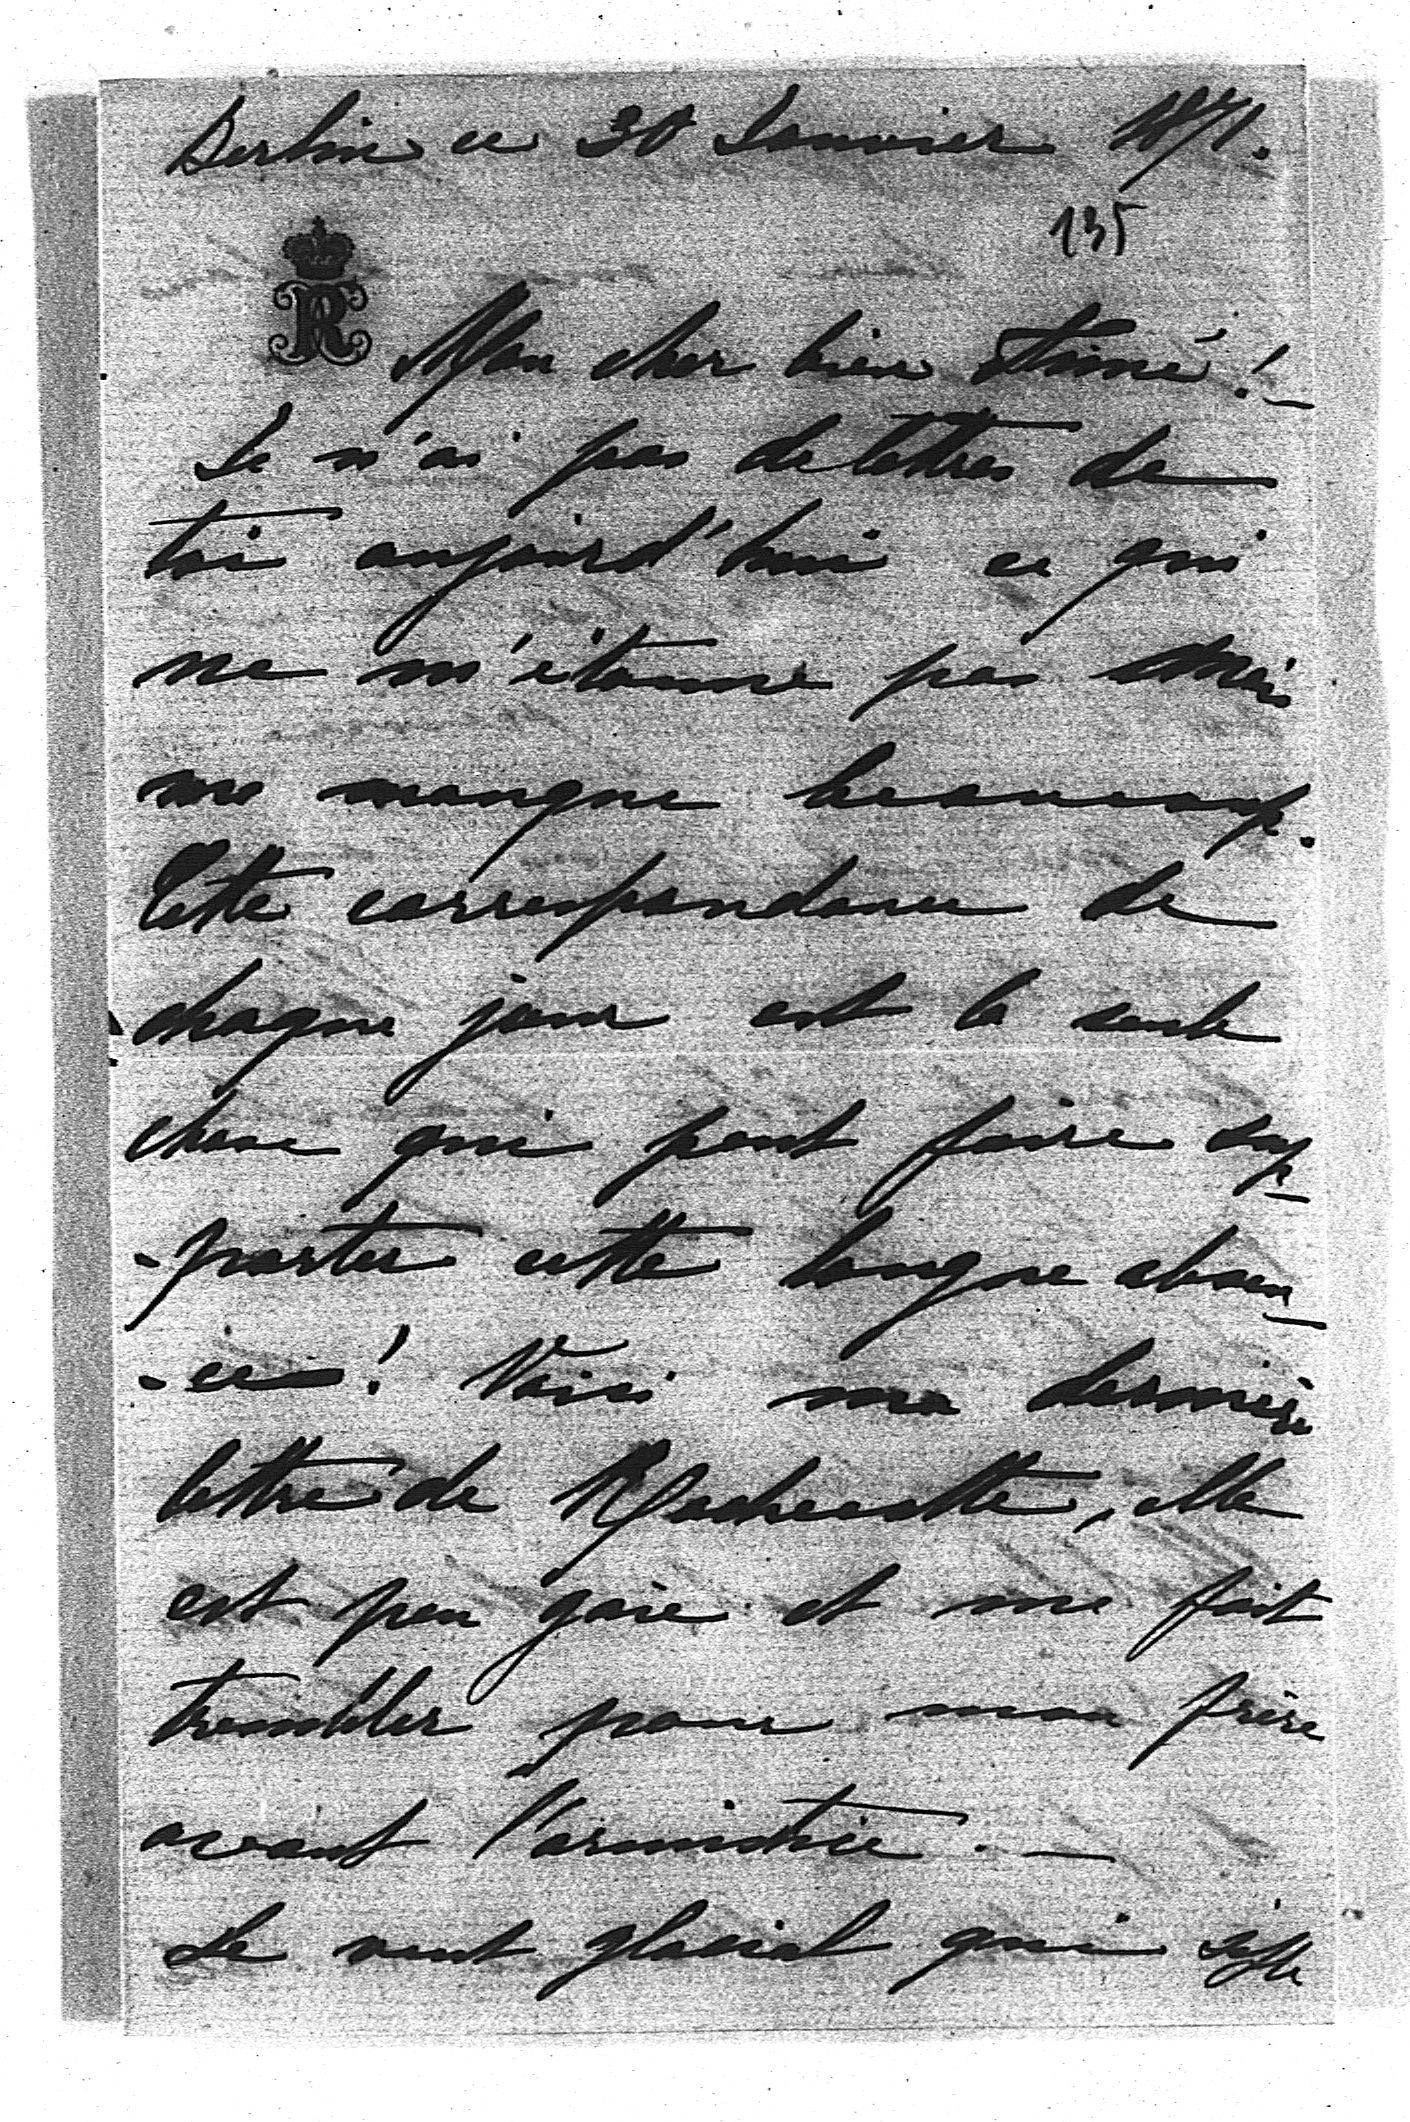 Berlin ce 30 Janvier 1871.
135
R
Mon cher bien Aimé!
Je n'ai pas de lettres de
toi aujourd'hui ce qui
ne m'étonne pas Mais
me manque beaucoup.
Cette correspondance de
chaque jour est la seule
chose qui peut faire sup-
-porter cette longue absen-
-ce! Voici ma dernière
lettre de Rochecotte, elle
est peu gaie et me fait
trembler pour mon frère
avant l'armistice. —
Le vent glacial qui siffle